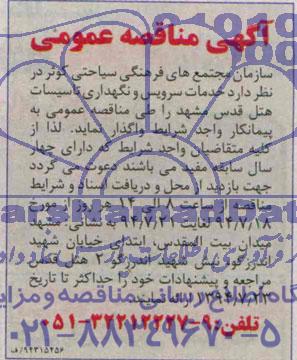 آگهی مناقصه عمومی
سازمان مجتمع های فرهنگی سیاحتی کوثر در
نظر دارد خدمات سرویس و نگهداری تاسیسات
هتل قدس مشهد را طی مناقصه عمومی به
پیمانکار واجد شرایط واگذار نماید. لذا از
کلیه متقاضیان واجد شرایط که دارای چهار
سال سابقه مفید می باشند دعوت می گردد
جهت بازدید از محل و دریافت اسناد و شرایط
مناقصه از ساعت ۸ الی ۱۴ هر روز از مورخ
۹۴/۷/۱۸ لغایت ۹۴/۷/۲۱ به نشانی: مشهد
میدان بیت المقدس، ابتدای خیابان شهید
اندرزگو، نبش شهید اندرزگو ۲ هتل قدس
مراجعه و پیشنهادات خود را حداکثر تا تاریخ
۱۳۹۴/۷/۲۳ ارائه نمایند.
تلفن: ۹-۳۲۲۱۲۲۲۷-۰۵۱
۹۴۳۱۵۴۵۶/ف
۰۲۱-۸۸۳۴۹۶۷۰-۵